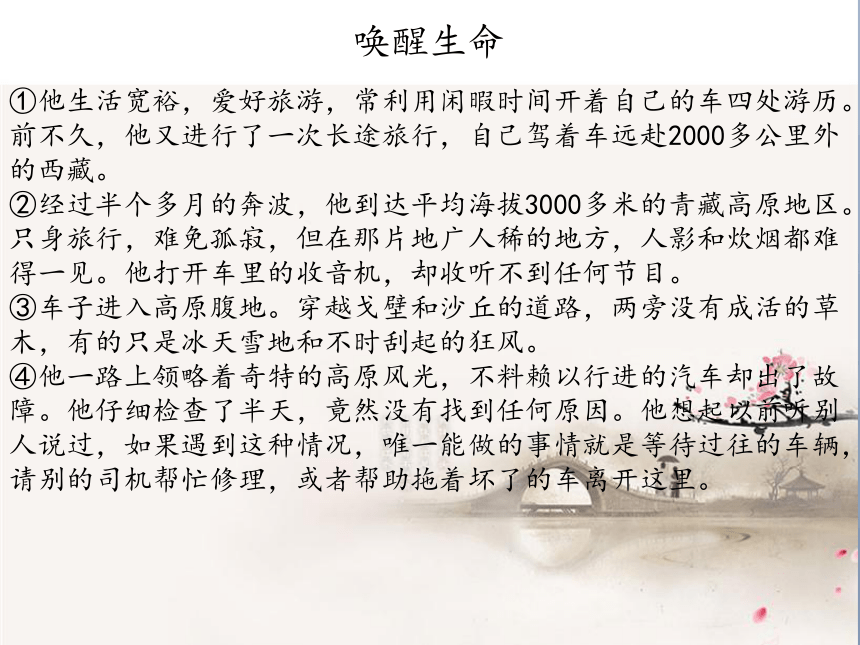 唤醒生命
①他生活宽裕，爱好旅游，常利用闲暇时间开着自己的车四处游历。
前不久，他又进行了一次长途旅行，自己驾着车远赴2000多公里外
的西藏。
②经过半个多月的奔波，他到达平均海拔3000多米的青藏高原地区。
只身旅行，难免孤寂，但在那片地广人稀的地方，人影和炊烟都难
得一见。他打开车里的收音机，却收听不到任何节目。
③车子进入高原腹地。穿越戈壁和沙丘的道路，两旁没有成活的草
木，有的只是冰天雪地和不时刮起的狂风。
④他一路上领略着奇特的高原风光，不料赖以行进的汽车却出了故
障。他仔细检查了半天，竟然没有找到任何原因。他想起以前听别
人说过，如果遇到这种情况，唯一能做的事情就是等待过往的车辆，
请别的司机帮忙修理，或者帮助拖着坏了的车离开这里。